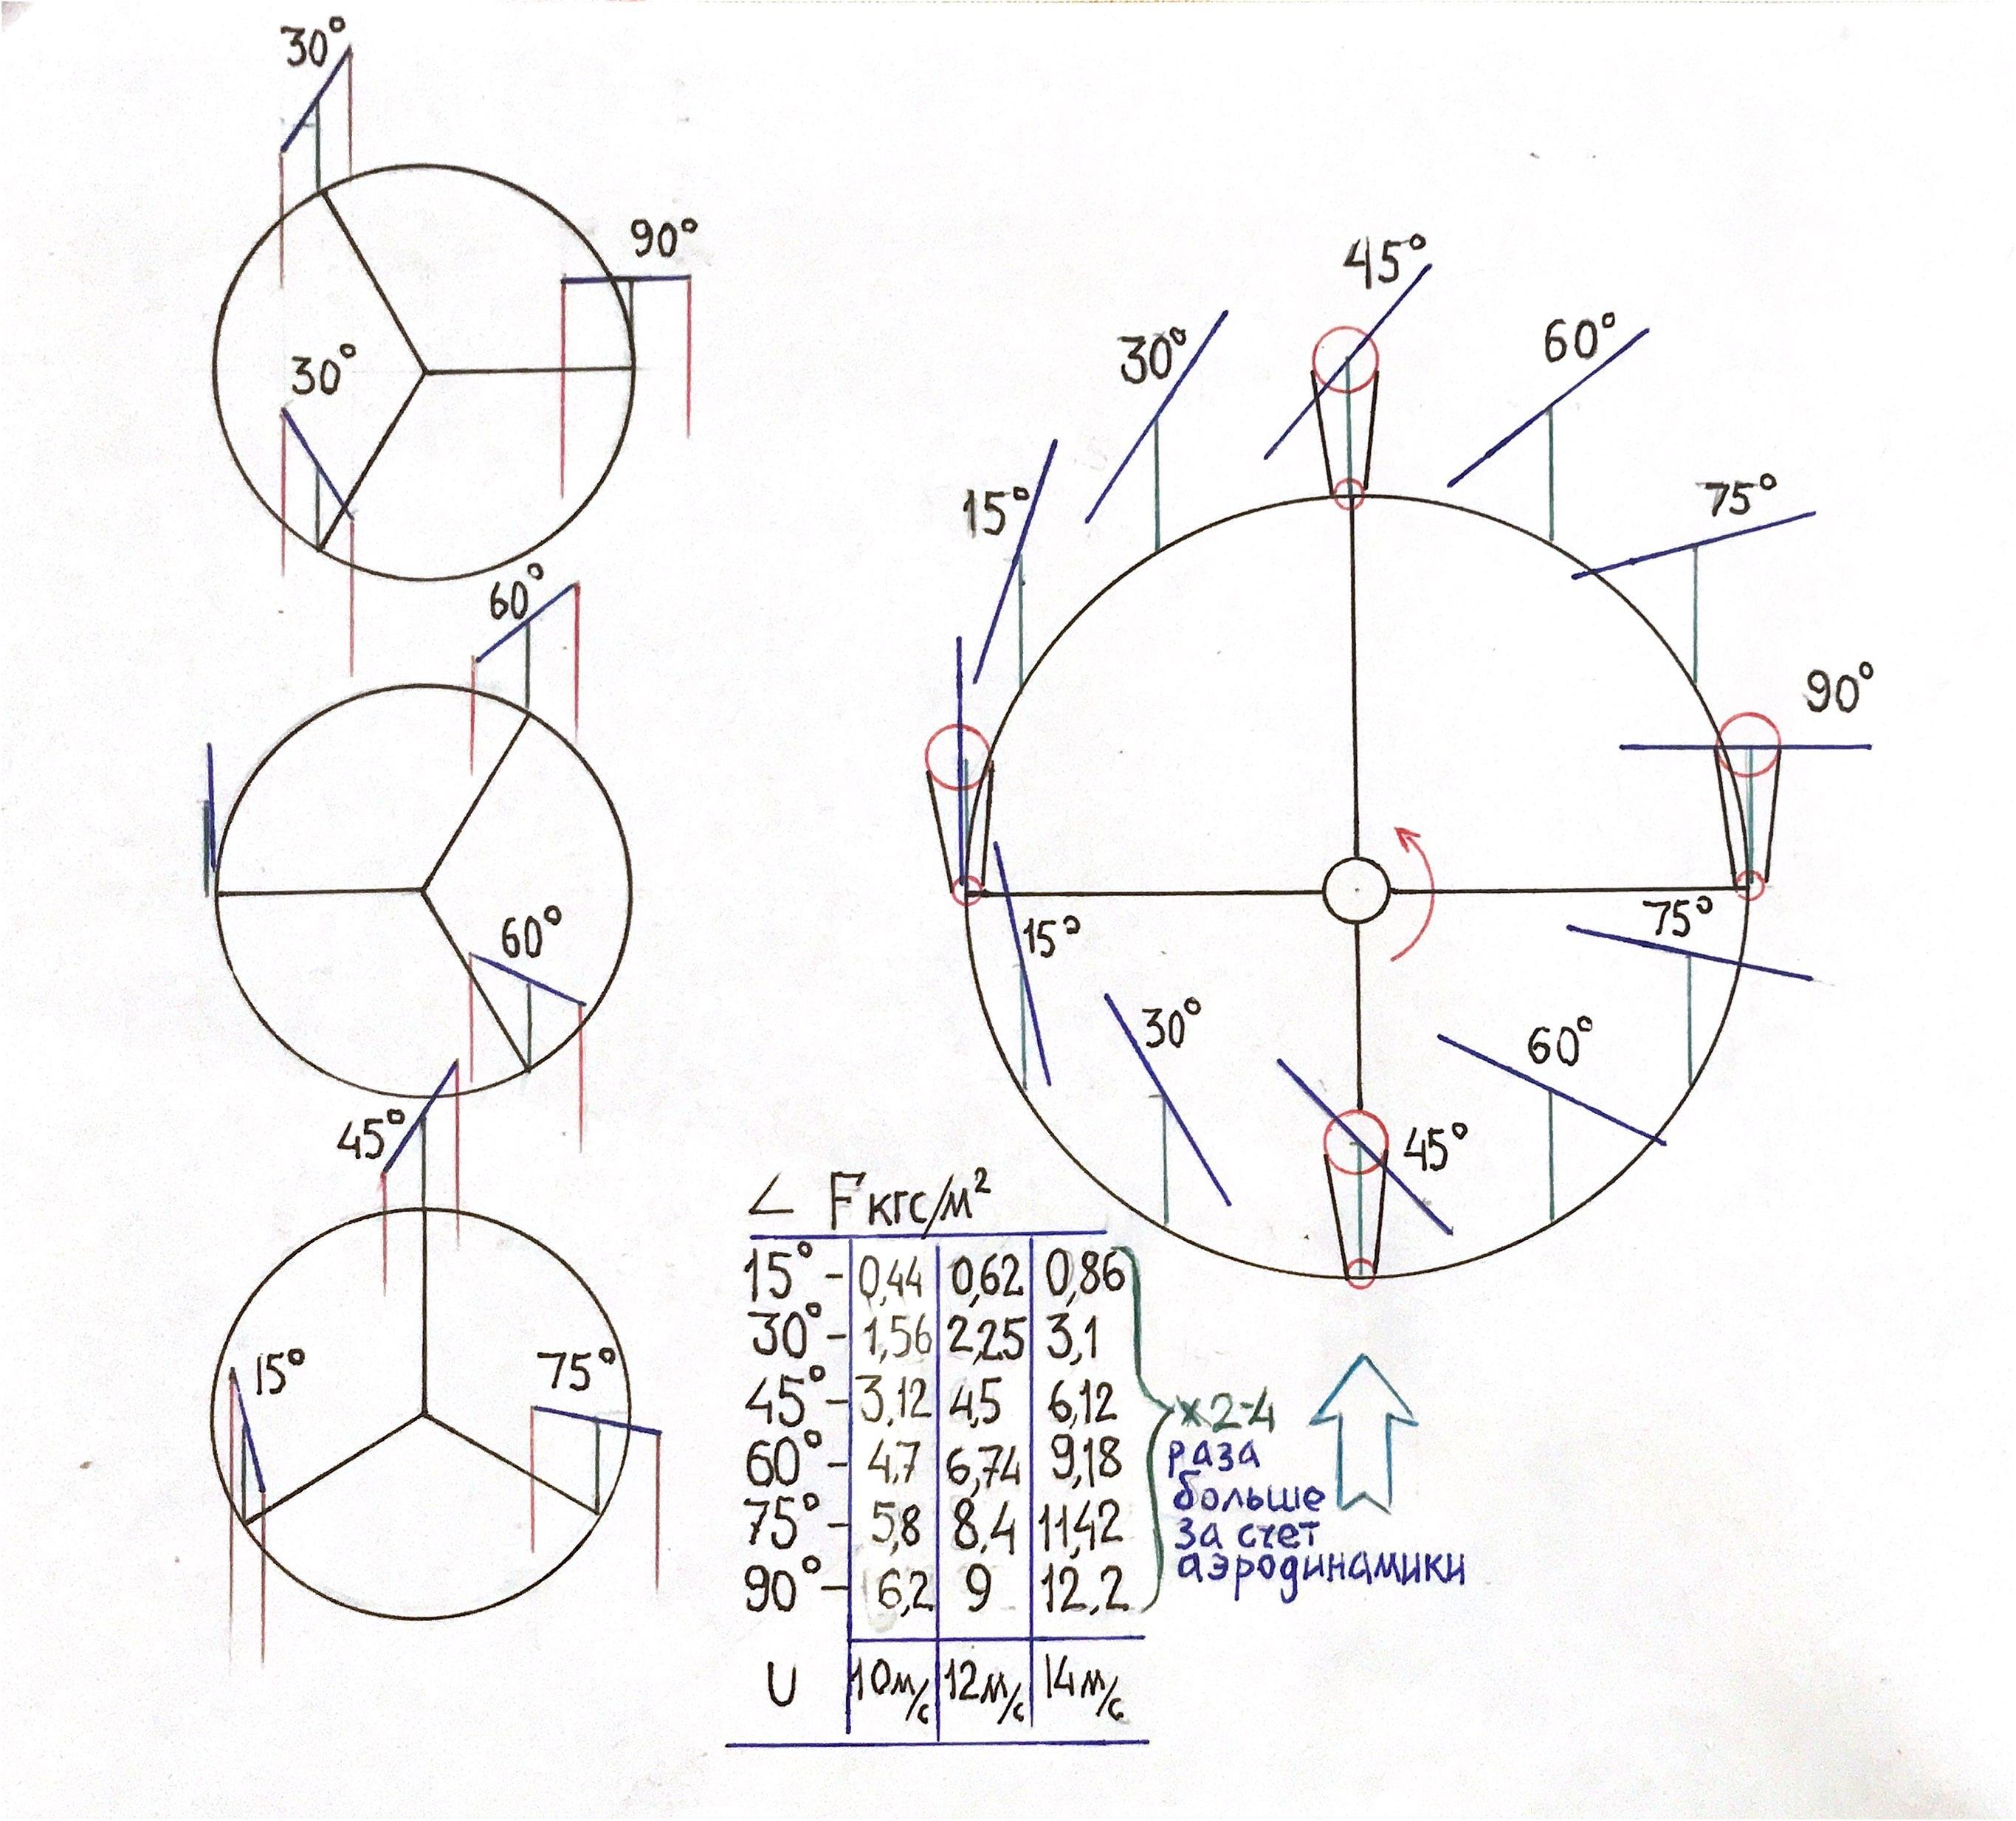 30°
90°
30°
60°
60°
45°
15°
75°
45°
30°
60°
15°
75°
90°
75°
15°
30°
60°
45°
∠ F кгс/м²
15° - 0,44 0,62 0,86
30° - 1,56 2,25 3,1
45° - 3,12 4,5 6,12
60° - 4,7 6,74 9,18
75° - 5,8 8,4 11,42
90° - 6,2 9 12,2
U 10м/с 12м/с 14м/с
×2-4
раза
больше
за счет
аэродинамики